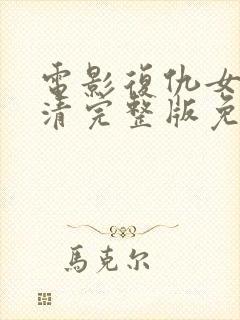 電影復仇女
清完整版免
馬克尔